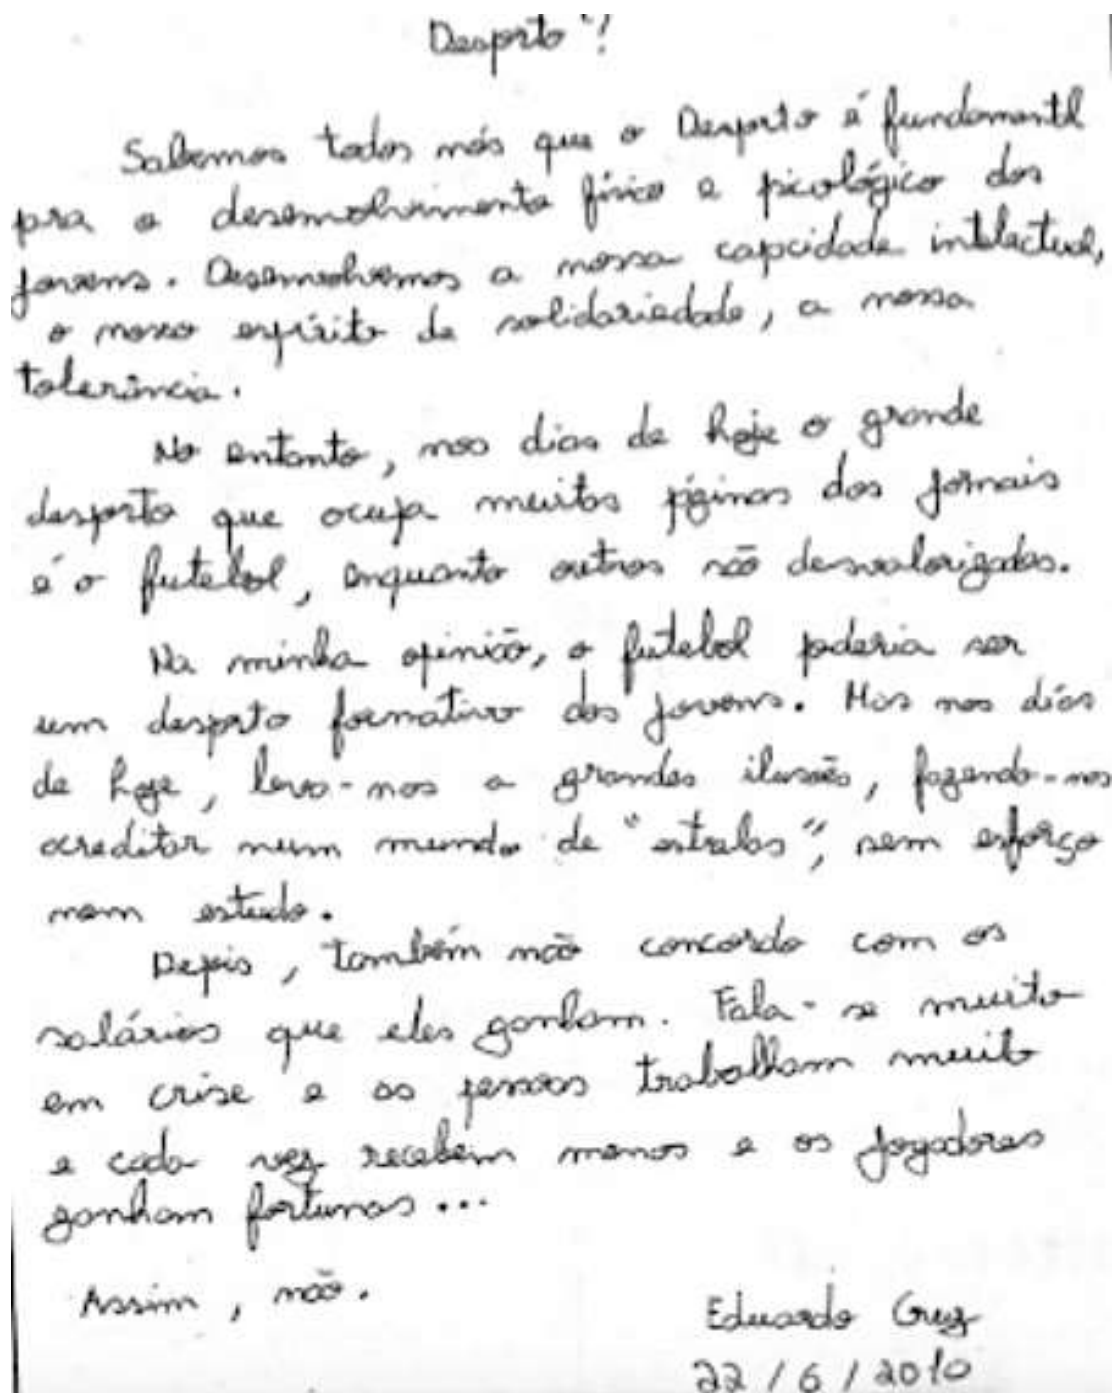 Desporto"?
Sabemos todos nós que o Desporto é fundamentl
pra o desenvolvimento físico e picológico dos
jovens. Desenvolvemos a nossa capcidade intelectual,
o nosso espírito de solidariedade, a nossa
tolerância.
No entanto, nos dias de hoje o grande
desporto que ocupa muitas páginas dos jornais
é o futebol, enquanto outros são desvalorizados.
Na minha opinião, o futebol poderia ser
um desporto formativo dos jovens. Mas nos dias
de hoje, leva-nos a grandes ilusões, fazendo-nos
acreditar num mundo de "estrelas", sem esforço
nem estudo.
Depis, também não concordo com os
salários que eles ganham. Fala-se muito
em crise e as pessoas trabalham muito
e cada vez recebem menos e os jogadores
ganham fortunas...
Assim, não.
Eduardo Cruz
22/6/2010